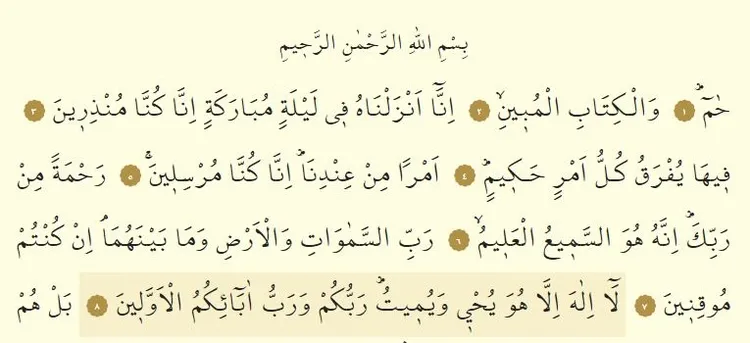 بِسْمِ اللهِ الرَّحْمٰنِ الرَّحٖيمِ
حٰمٓۜ ﴿١﴾ وَالْكِتَابِ الْمُبٖينِۙ ﴿٢﴾ اِنَّٓا اَنْزَلْنَاهُ فٖي لَيْلَةٍ مُبَارَكَةٍ اِنَّا كُنَّا مُنْذِرٖينَ ﴿٣﴾
فٖيهَا يُفْرَقُ كُلُّ اَمْرٍ حَكٖيمٍۜ ﴿٤﴾ اَمْرًا مِنْ عِنْدِنَاۜ اِنَّا كُنَّا مُرْسِلٖينَۚ ﴿٥﴾ رَحْمَةً مِنْ
رَبِّكَۜ اِنَّهُ هُوَ السَّمٖيعُ الْعَلٖيمُۙ ﴿٦﴾ رَبِّ السَّمٰوَاتِ وَالْاَرْضِ وَمَا بَيْنَهُمَاۢ اِنْ كُنْتُمْ
مُوقِنٖينَ ﴿٧﴾ لَٓا اِلٰهَ اِلَّا هُوَ يُحْيٖ وَيُمٖيتُۜ رَبُّكُمْ وَرَبُّ اٰبَٓائِكُمُ الْاَوَّلٖينَ ﴿٨﴾ بَلْ هُمْ